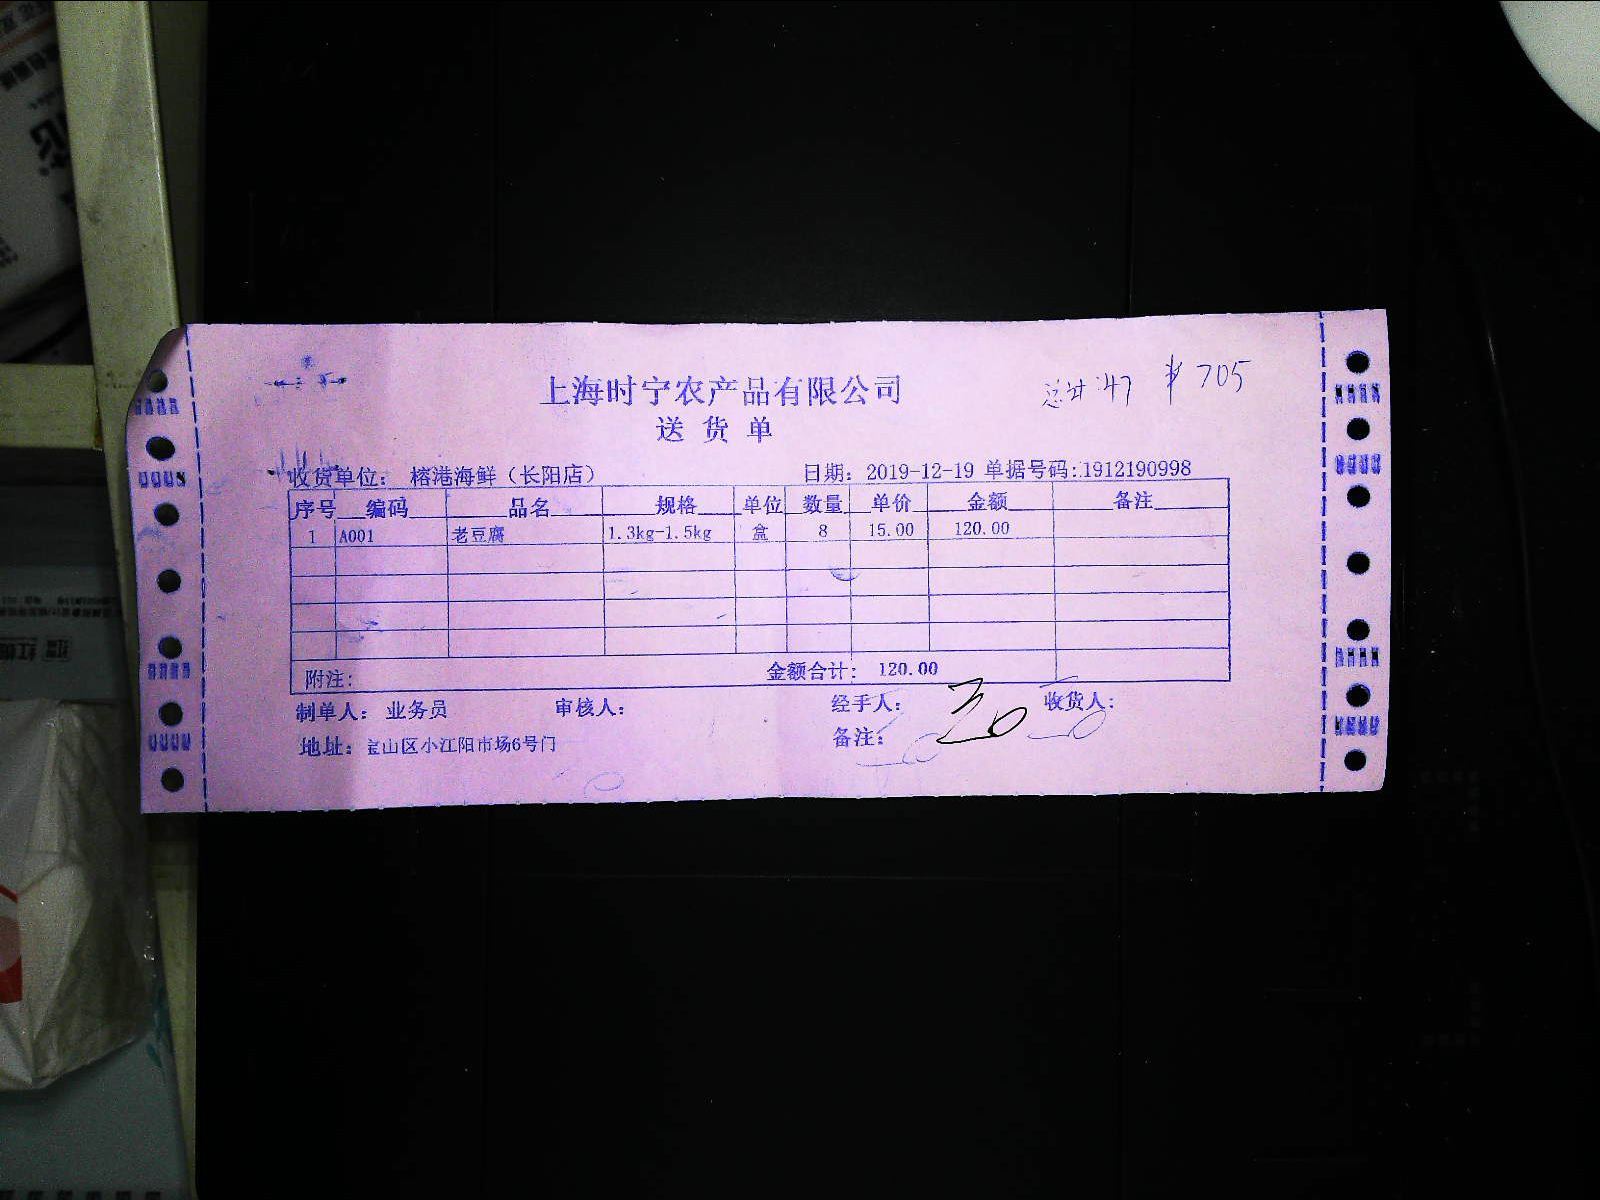 上海时宁农产品有限公司
总计:47 ¥705
送 货 单
收货单位: 榕港海鲜（长阳店） 日期: 2019-12-19 单据号码:1912190998
序号 编码 品名 规格 单位 数量 单价 金额 备注
1 A001 老豆腐 1.3kg-1.5kg 盒 8 15.00 120.00
附注: 金额合计: 120.00
制单人: 业务员 审核人: 经手人: 收货人:
地址: 宝山区小江阳市场6号门 备注: